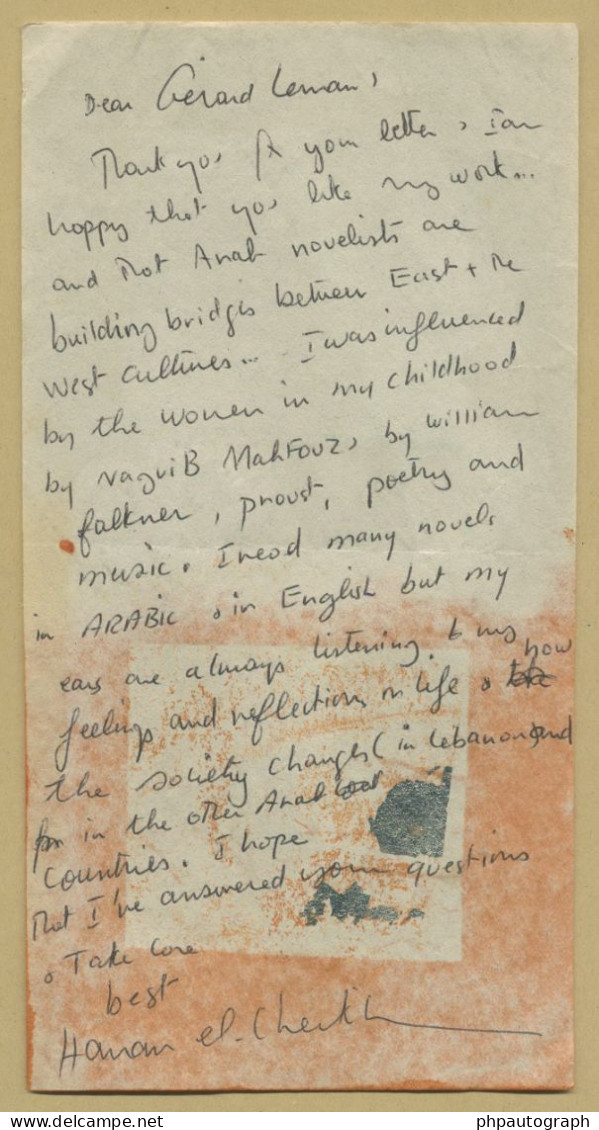 Dear Gérard Leman,
Thank you for your letter, I am
happy that you like my work...
and that Arab novelists are
building bridges between East + the
West cultures... I was influenced
by the women in my childhood
by naguiB MAHFOUZ, by william
falkner, proust, poetry and
music. I read many novels
in ARABIC, in English but my
ears are always listening to my
feelings and reflections on life & how
the society changes (in Lebanon) and
in the other Arab
countries. I hope
that I've answered your questions
. Take Care
best
Hanan el-Cheikh
delcampe.net
phpautograph